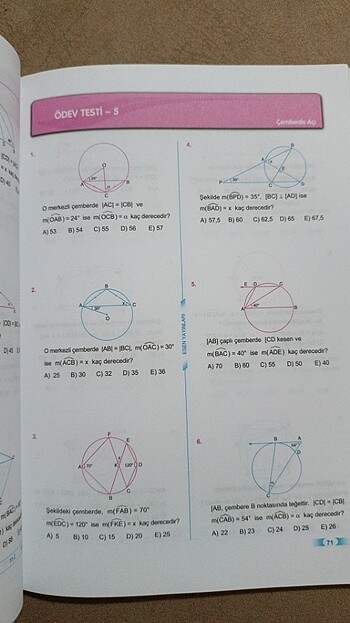 ÖDEV TESTİ – 5
Çemberde Açı
1.
O merkezli çemberde |AC| = |CB| ve
m(OAB) = 24° ise m(OCB) = α kaç derecedir?
A) 53 B) 54 C) 55 D) 56 E) 57
2.
O merkezli çemberde |AB| = |BC|, m(OAC) = 30°
ise m(ACB) = x kaç derecedir?
A) 25 B) 30 C) 32 D) 35 E) 36
3.
Şekildeki çemberde, m(FAB) = 70°
m(EDC) = 120° ise m(FKE) = x kaç derecedir?
A) 5 B) 10 C) 15 D) 20 E) 25
ESEN YAYINLARI
4.
Şekilde m(BPD) = 35°, [BC] ⊥ [AD] ise
m(BAD) = x kaç derecedir?
A) 57,5 B) 60 C) 62,5 D) 65 E) 67,5
5.
[AB] çaplı çemberde [CD kesen ve
m(BAC) = 40° ise m(ADE) kaç derecedir?
A) 70 B) 60 C) 55 D) 50 E) 40
6.
[AB, çembere B noktasında teğettir. |CD| = |CB|
m(CAB) = 54° ise m(ACB) = α kaç derecedir?
A) 22 B) 23 C) 24 D) 25 E) 26
71